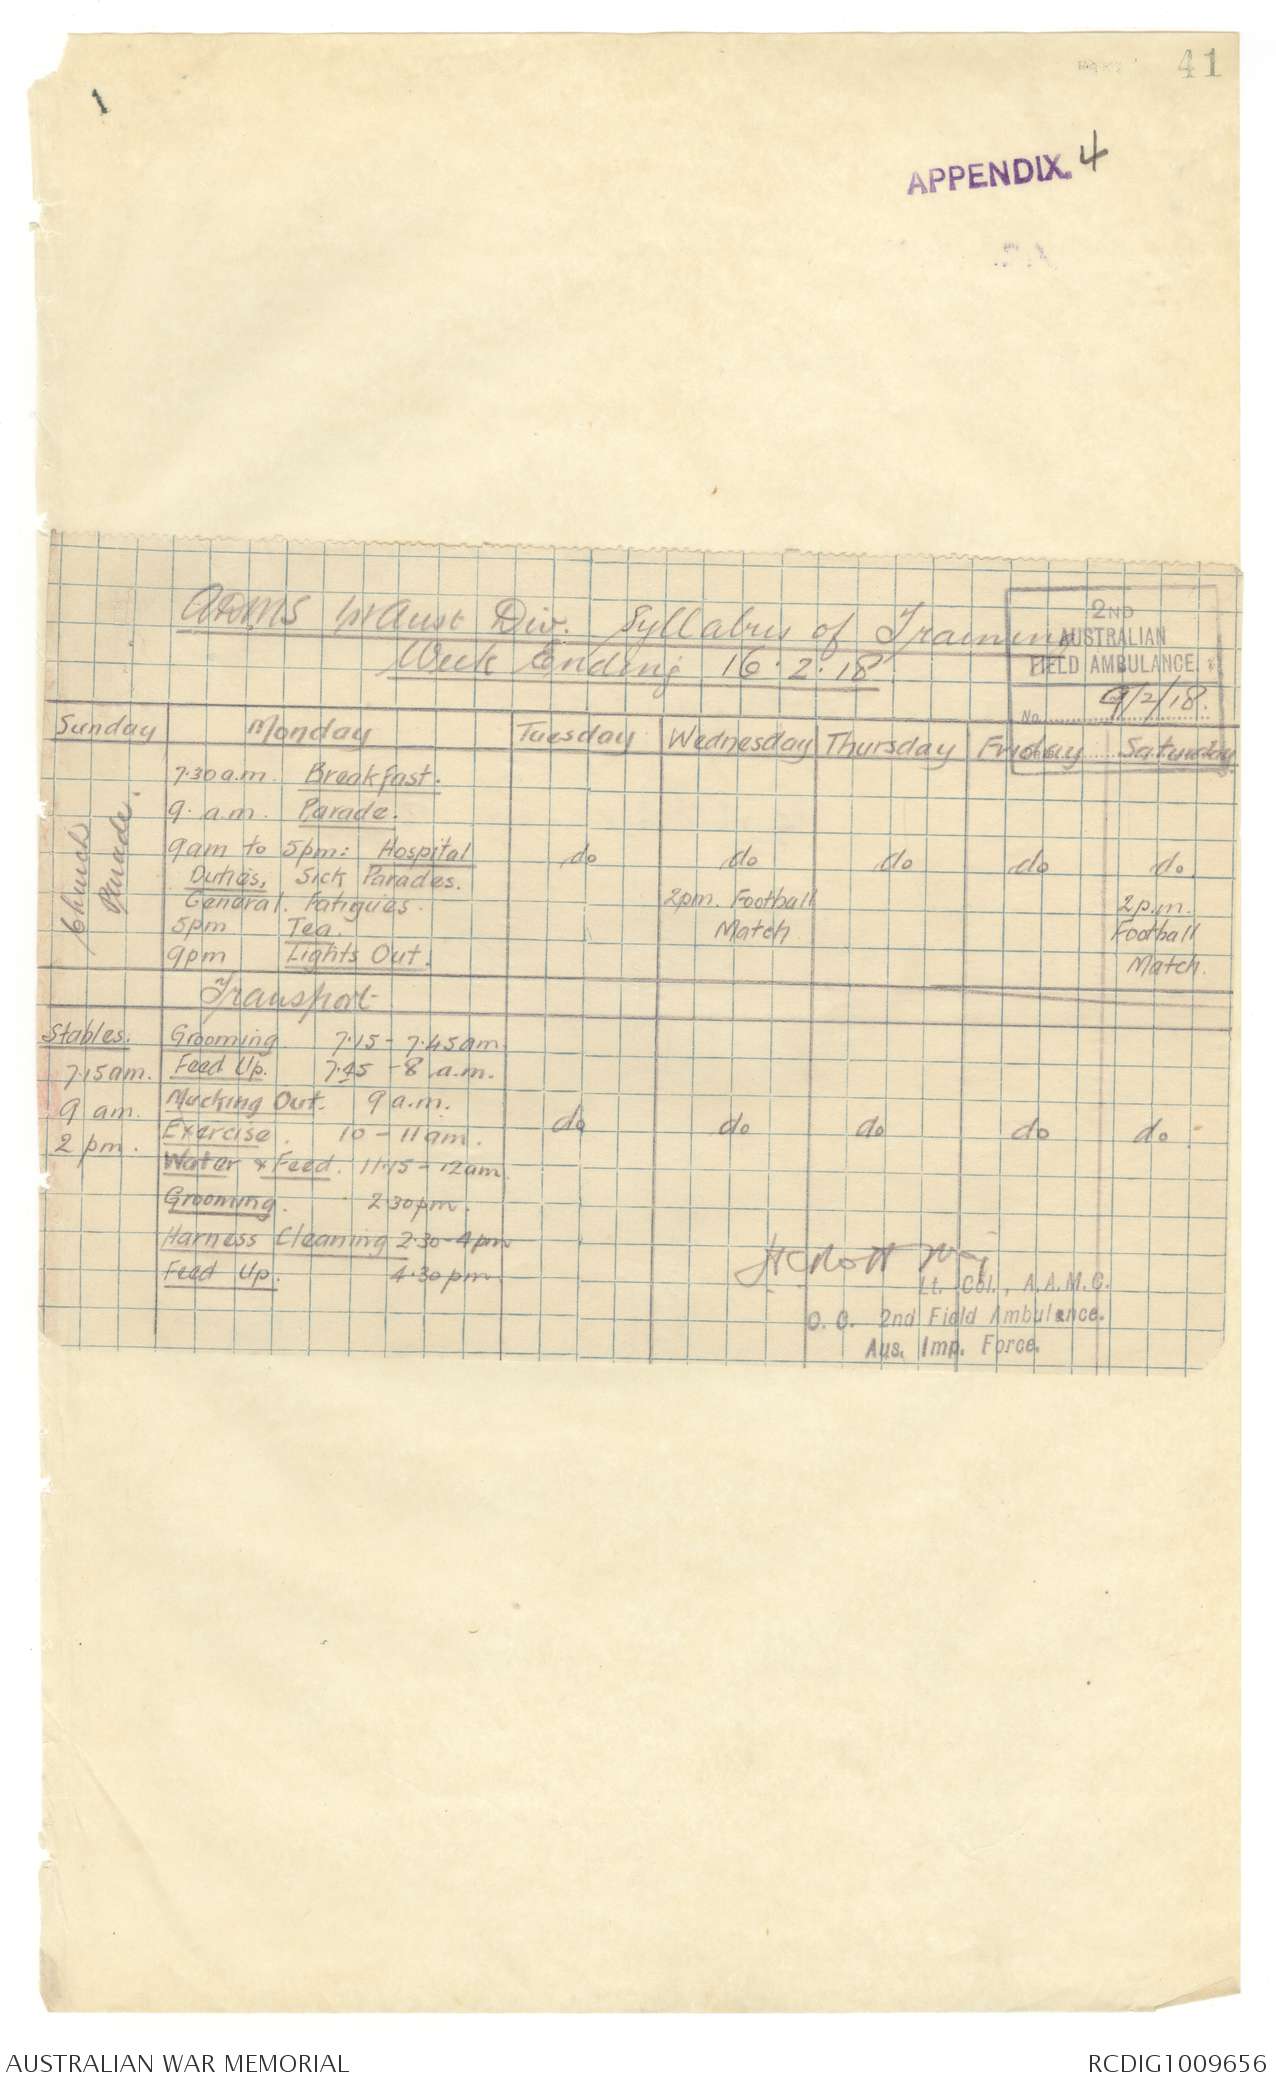 41
1
APPENDIX. 4
ADMS 1st Aust Div. Syllabus of Training
Week Ending 16.2.18
2ND
AUSTRALIAN
FIELD AMBULANCE
No. 9/2/18.
Sunday Monday Tuesday Wednesday Thursday Friday Saturday
Church Parade.
7.30 a.m. Breakfast.
9. a.m. Parade.
9am to 5pm: Hospital do do do do do.
Duties, Sick Parades.
General. Fatigues. 2pm. Football 2 p.m.
5pm Tea. Match. Football
9pm Lights Out. Match.
Transport
Stables. Grooming 7.15 - 7.45am
7.15am. Feed Up. 7.45 - 8 a.m.
9 am. Mucking Out. 9 a.m.
2 pm. Exercise. 10 - 11am. do do do do do.
Water & Feed. 11.15 - 12am
Grooming. 2.30pm.
Harness Cleaning 2.30-4pm
Feed Up. 4.30pm
Maj
Lt. Col., A.A.M.C.
O. C. 2nd Field Ambulance.
Aus. Imp. Force.
AUSTRALIAN WAR MEMORIAL
RCDIG1009656